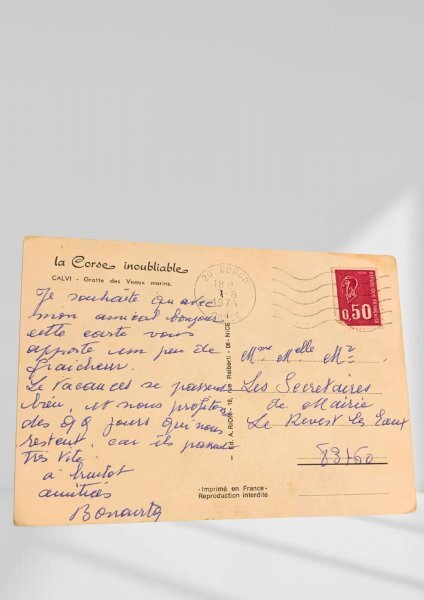 la Corse inoubliable
CALVI - Grotte des Veaux marins.
Je souhaite qu'avec
mon amical bonjour
cette carte vous
apporte un peu de
fraicheur.
Le Vacances se passent
bien, et nous profitons
des 98 jours qui nous
restent, car ils passent
tres vite
à bientot
amitiés
20 BORGO
18 H
1-8
1974
CORSE
0,50
Ed. A. RION - 18, rue Raiberti - 06-NICE
Mme Melle Mr
Les Secretaires
de Mairie
Le Revest Les Eaux
83760
-Imprimé en France-
Reproduction interdite